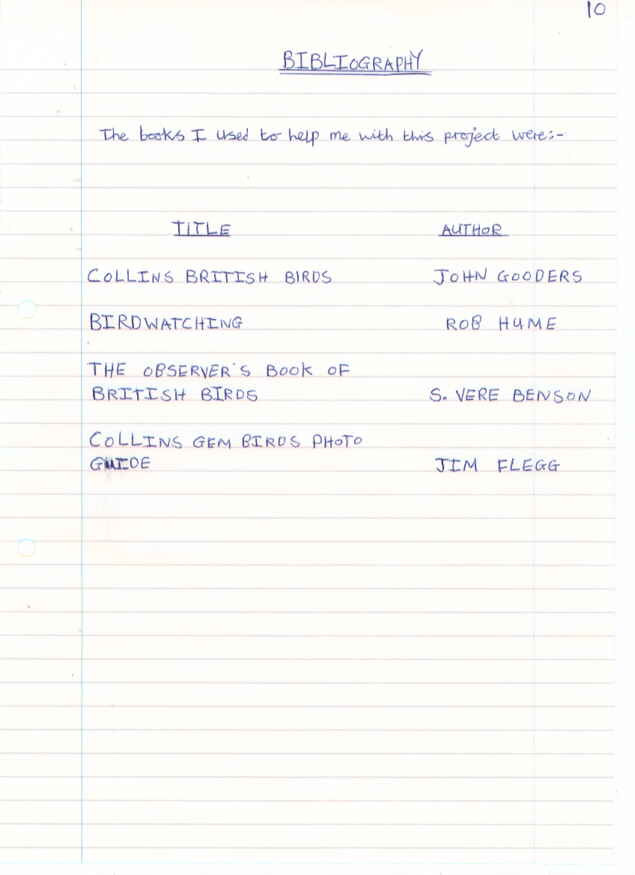 10
BIBLIOGRAPHY
The books I used to help me with this project were:-
TITLE AUTHOR
COLLINS BRITISH BIRDS JOHN GOODERS
BIRDWATCHING ROB HUME
THE OBSERVER'S BOOK OF
BRITISH BIRDS S. VERE BENSON
COLLINS GEM BIRDS PHOTO
GUIDE JIM FLEGG